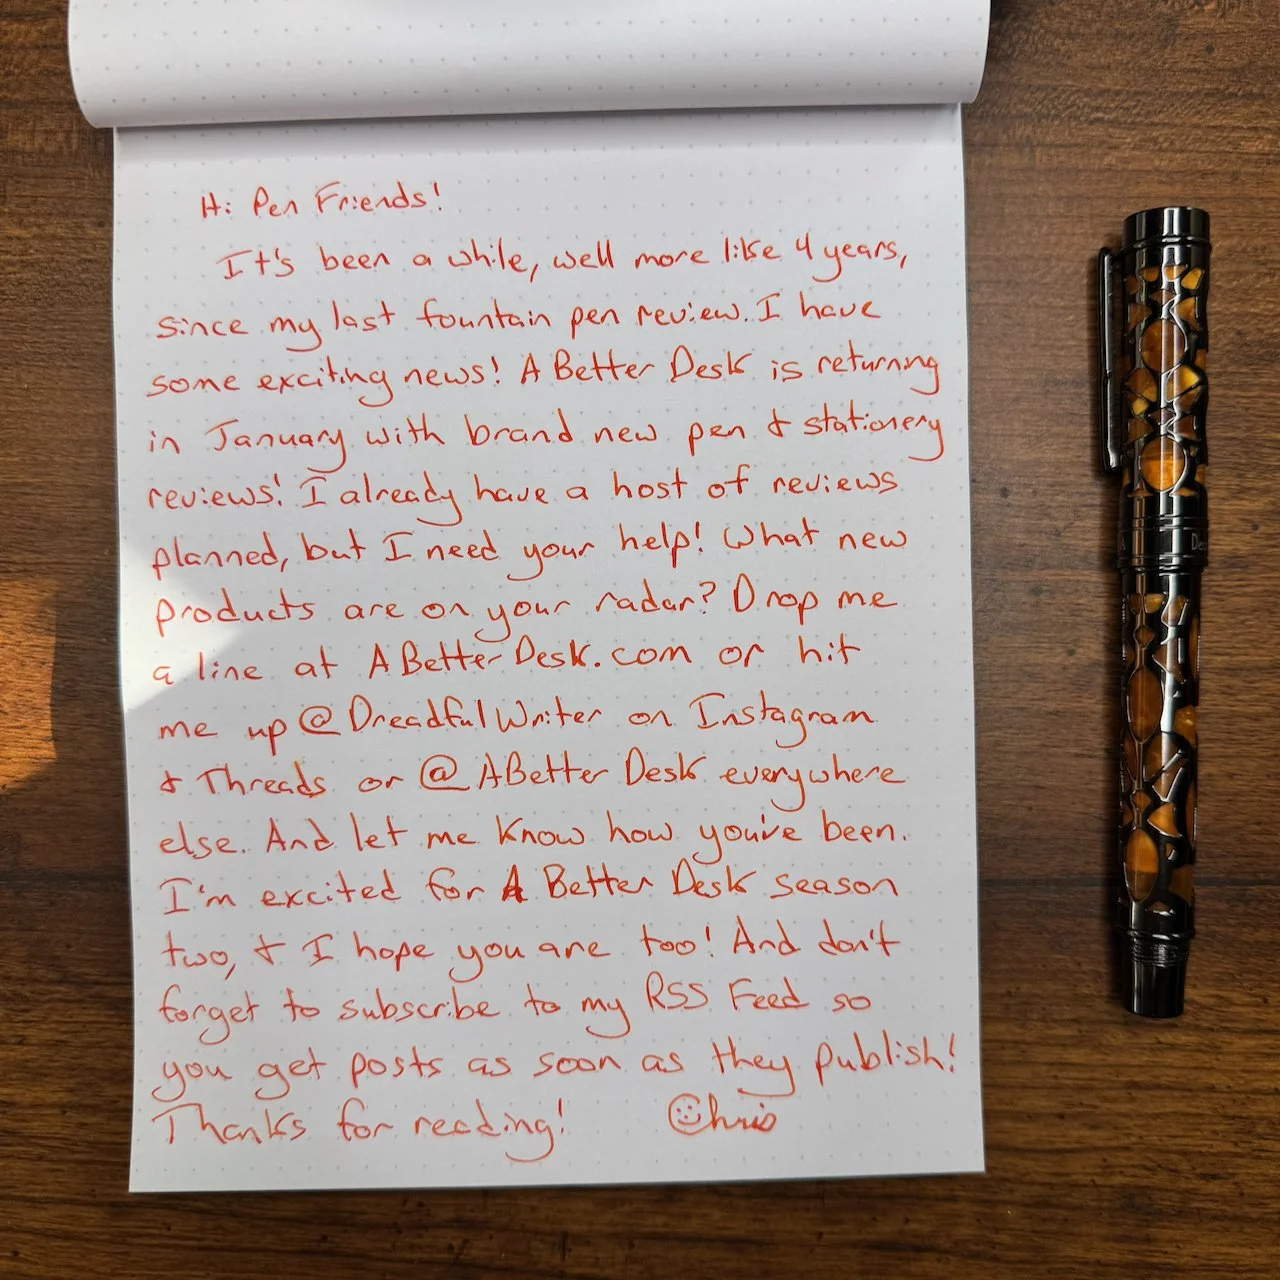 Hi Pen Friends!
It's been a while, well more like 4 years,
since my last fountain pen review. I have
some exciting news! A Better Desk is returning
in January with brand new pen & stationery
reviews! I already have a host of reviews
planned, but I need your help! What new
products are on your radar? Drop me
a line at ABetterDesk.com or hit
me up @DreadfulWriter on Instagram
& Threads or @ABetterDesk everywhere
else. And let me know how you've been.
I'm excited for A Better Desk season
two, & I hope you are too! And don't
forget to subscribe to my RSS Feed so
you get posts as soon as they publish!
Thanks for reading! Chris